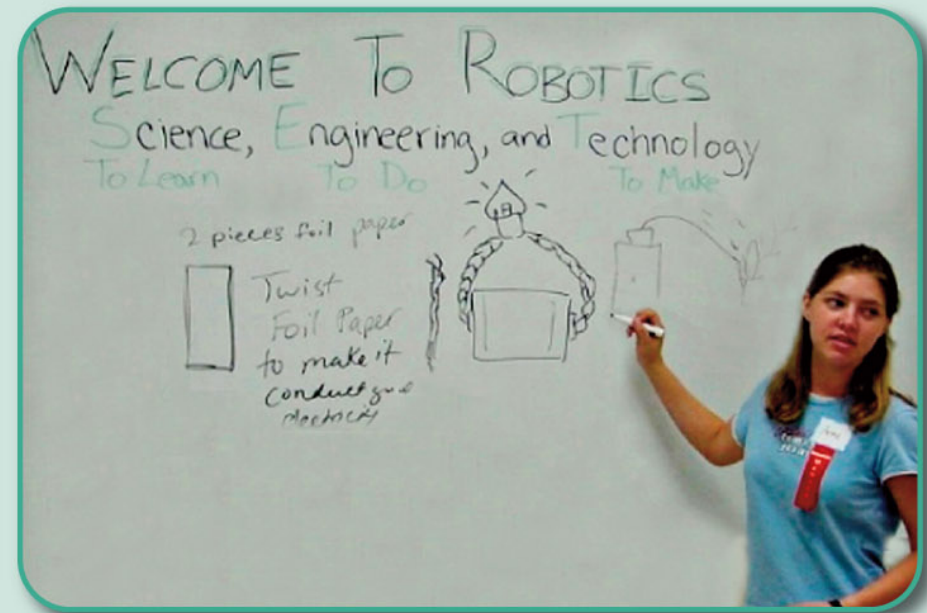 WELCOME TO ROBOTICS
Science, Engineering, and Technology
To Learn To Do To Make
2 pieces foil paper
Twist
Foil Paper
to make it
conduct
electricity